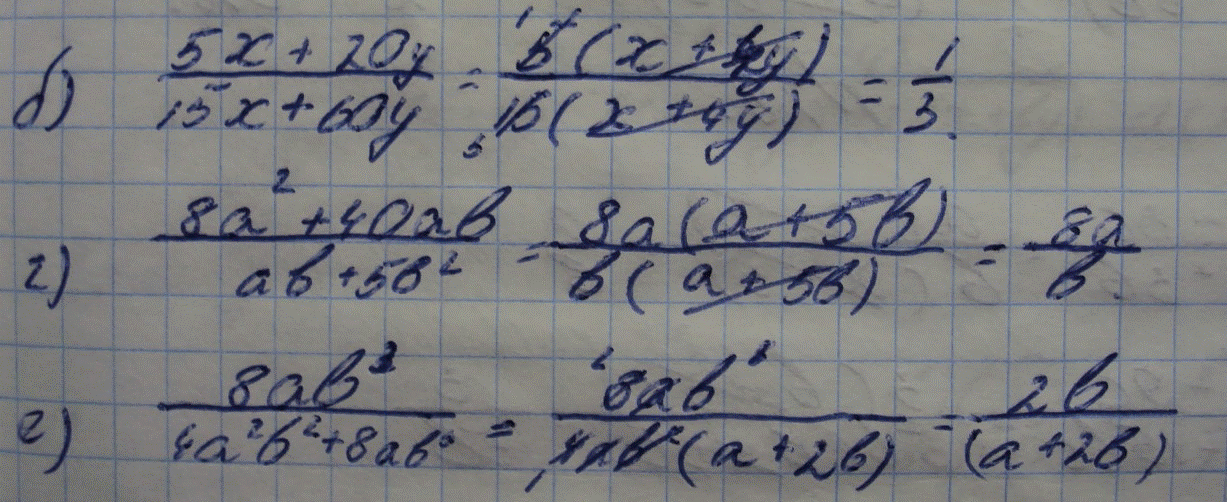 б) (5x + 20y)/(15x + 60y) = (5(x + 4y))/(15(x + 4y)) = 1/3.
г) (8a² + 40ab)/(ab + 5b²) = (8a(a + 5b))/(b(a + 5b)) = 8a/b.
е) (8ab³)/(4a²b² + 8ab³) = (8ab³)/(4ab²(a + 2b)) = 2b/(a + 2b)